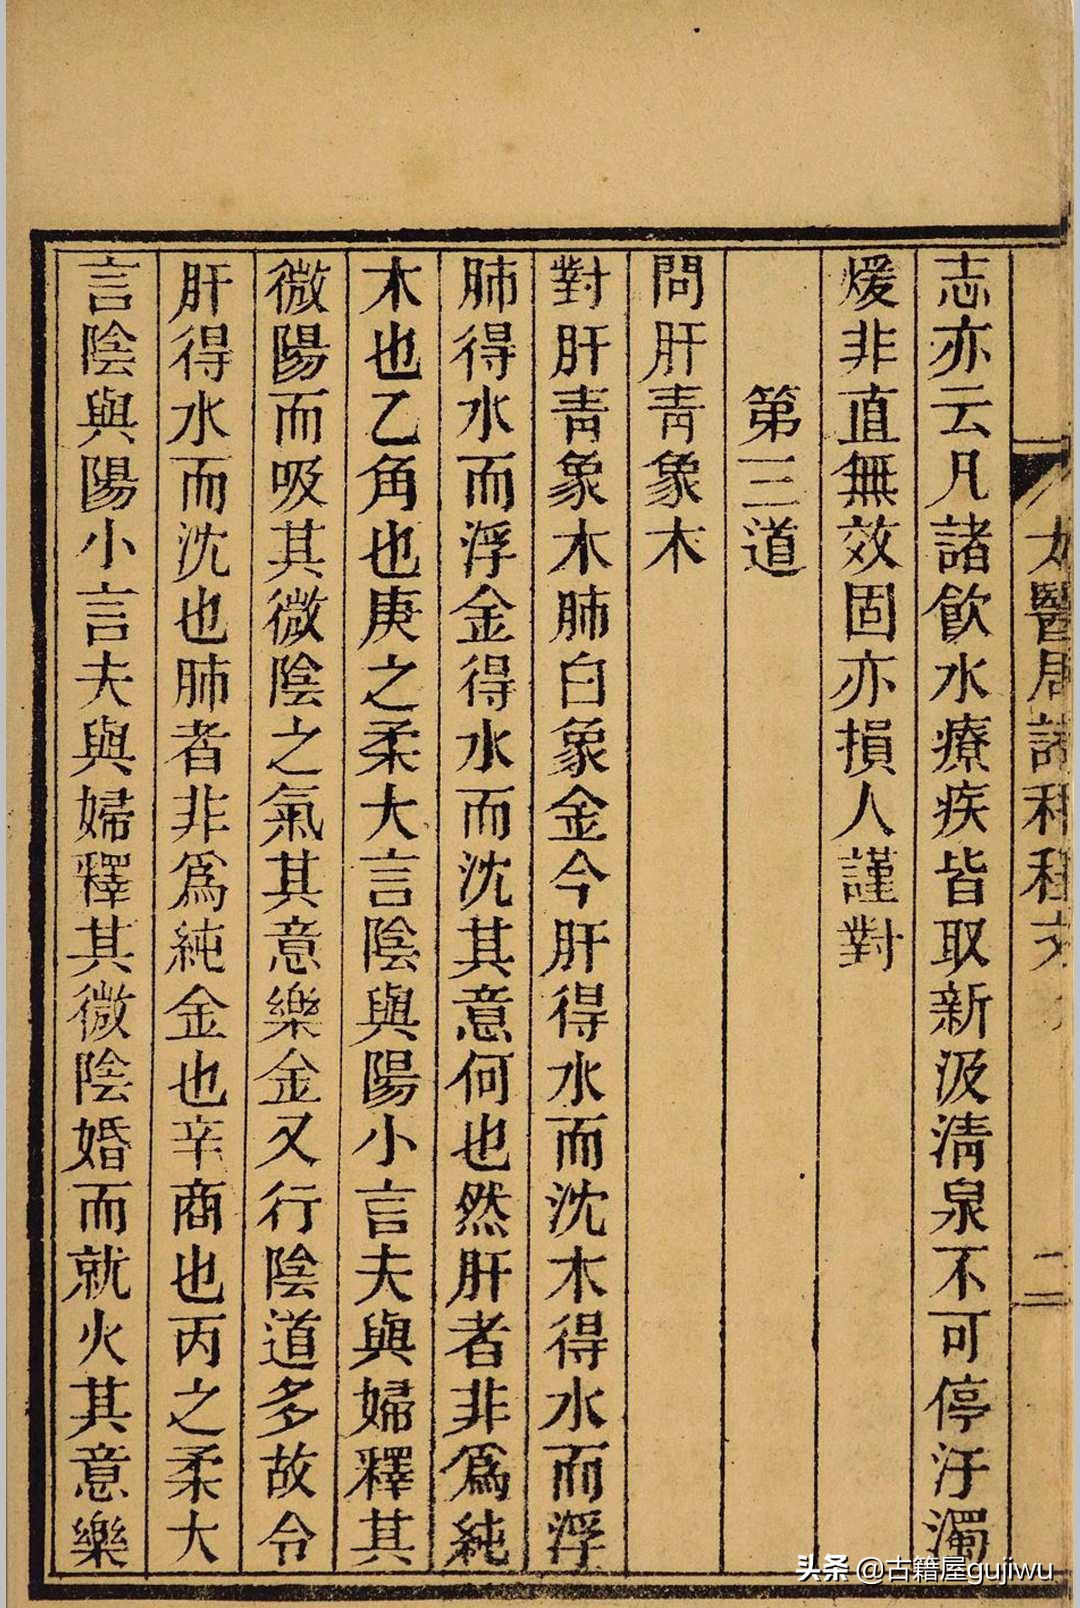 志亦云凡諸飲水療疾皆取新汲淸泉不可停汙濁
煖非直無效固亦損人謹對
第三道
問肝靑象木
對肝靑象木肺白象金今肝得水而沈木得水而浮
肺得水而浮金得水而沈其意何也然肝者非爲純
木也乙角也庚之柔大言陰與陽小言夫與婦釋其
微陽而吸其微陰之氣其意樂金又行陰道多故令
肝得水而沈也肺者非爲純金也辛商也丙之柔大
言陰與陽小言夫與婦釋其微陰婚而就火其意樂
頭条 @古籍屋gujiwu